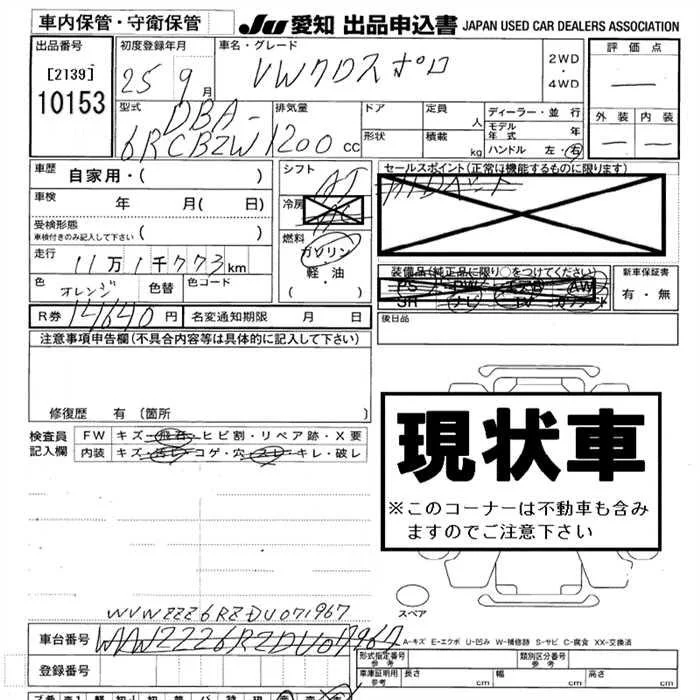 車内保管・守衛保管 JU 愛知 出品申込書 JAPAN USED CAR DEALERS ASSOCIATION
出品番号 初度登録年月 車名・グレード 評価点
[2139] 25 9月 VWクロスポロ 2WD・4WD —
10153 型式 DBA-6RCBZW 排気量 1200cc ドア 定員 人 ディーラー・並行 外装 内装
形状 積載 kg モデル年式 年 — —
ハンドル 左・右
車歴 自家用・( ) シフト AT セールスポイント(正常は機能するものに限ります)
車検 年 月( 日) 冷房
受検形態 車検付きのみ記入して下さい ( ) 燃料 ガソリン・軽・油 ( ・ )
走行 11万1千773km 装備品(純正品に限り○をつけてください) 新車保証書
色 オレンジ 色替 色コード PS PW AW 有・無
SR ナビ TV
R券 14640円 名変通知期限 月 日 後日品
注意事項申告欄(不具合内容等は具体的に記入して下さい)
修復歴 有(箇所 )
検査員記入欄 FW キズ・飛石・ヒビ割・リペア跡・X要
内装 キズ・汚レ・コゲ・穴・スレ・キレ・破レ
現状車
※このコーナーは不動車も含み
ますのでご注意下さい
スペア
WVWZZZ6RZDU071967
車台番号 WVWZZZ6RZDU071967 A-キズ E-エクボ U-凹み W-補修跡 S-サビ C-腐食 XX-交換済
形式指定番号 参考 類別区分番号 参考
登録番号 車庫証明用 参考 長さ cm 幅 cm 高さ cm